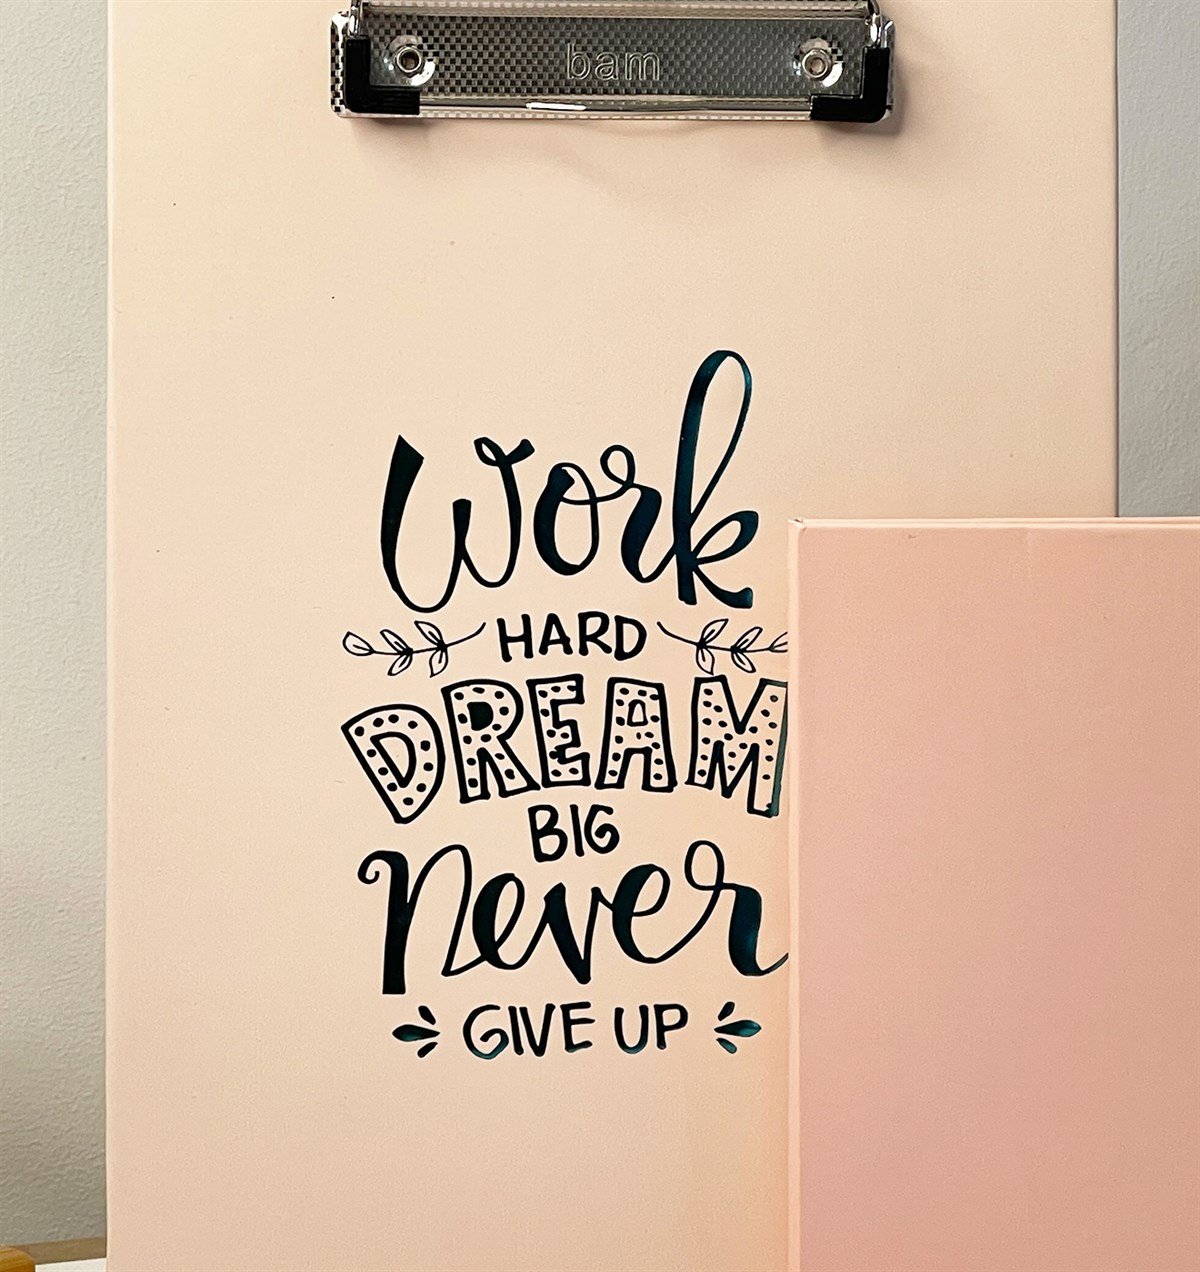 bam
Work
HARD
DREAM
BIG
Never
GIVE UP